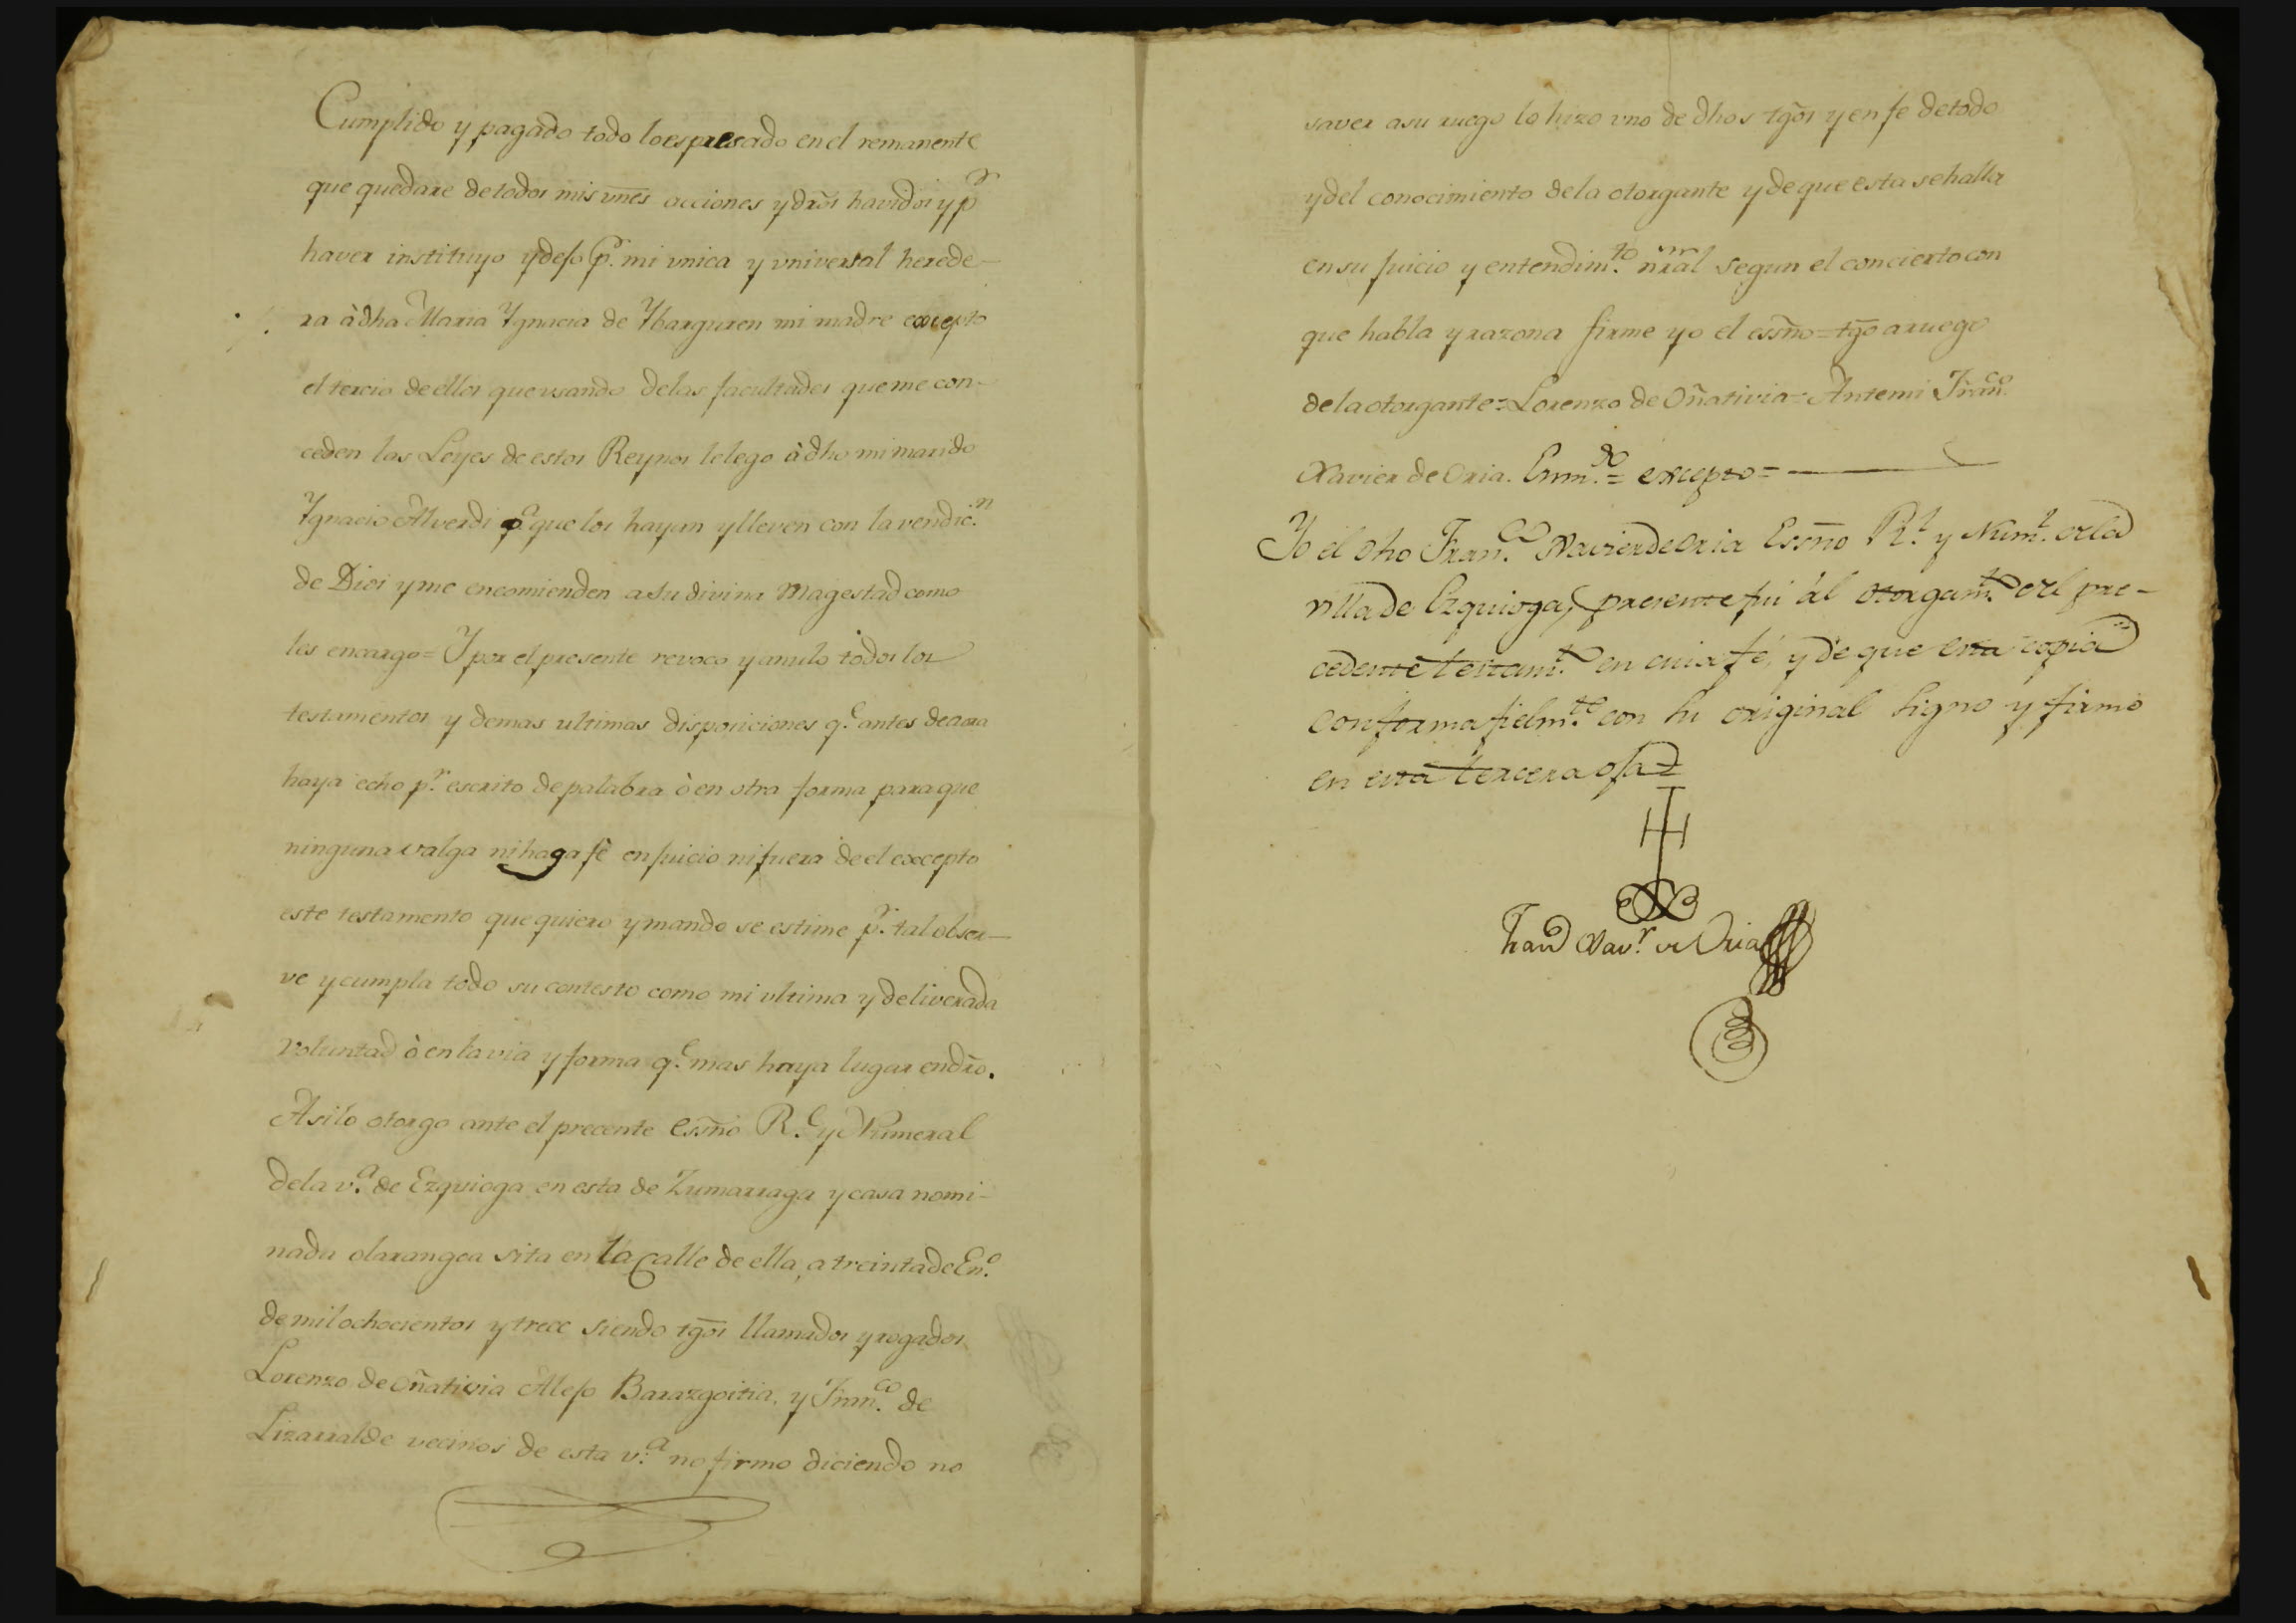 Cumplido y pagado todo lo espresado en el remanente
que quedare de todos mis vnes acciones y dros havidos y pr
haver instituyo y dejo pr. mi vnica y vniversal herede-
ra à dha Maria Ygnacia de Ybarguren mi madre excepto
el tercio de ellos que usando de las facultades que me con-
ceden las Leyes de estos Reynos le lego à dho mi marido
Ygnacio Alverdi pa. que los hayan y lleven con la vendic.n
de Dios y me encomienden a su divina Magestad como
les encargo = Y por el presente revoco y anulo todos los
testamentos y demas ultimas disposiciones q.e antes de aora
haya echo p.r escrito de palabra ò en otra forma para que
ninguna valga ni haga fè en juicio ni fuera de el excepto
este testamento que quiero y mando se estime p.r tal obser-
ve y cumpla todo su contesto como mi vltima y deliverada
voluntad ò en la via y forma q.e mas haya lugar en dro.
Asi lo otorgo ante el precente Essno R.l y Numeral
de la v.a de Ezquioga en esta de Zumarraga y casa nomi-
nada olarangea sita en la Calle de ella, a treinta de En.o
de mil ochocientos y trece siendo tgos llamados y rogados
Lorenzo de Oñativia Alejo Barazgoitia, y Fran.co de
Lizarralde vecinos de esta v.a no firmo diciendo no
saver a su ruego lo hizo vno de dhos tgos y en fe de todo
y del conocimiento de la otorgante y de que esta se halla
en su juicio y entendim.to nral segun el concierto con
que habla y razona firme yo el essno = tgo a ruego
de la otorgante = Lorenzo de Oñativia = Ante mi Fran.co
Xavier de Oria. Enm.do = excepto =
Yo el dho Fran.co Xavier de Oria Essno R.l y Num.l de la
villa de Ezquioga, presente fui àl otorgam.to del pre-
cedente testam.to en cuia fé, y de que esta copia
conforma fielm.te con su original signo y firmo
en esta tercera oja
Fran.co Xav.r de Oria